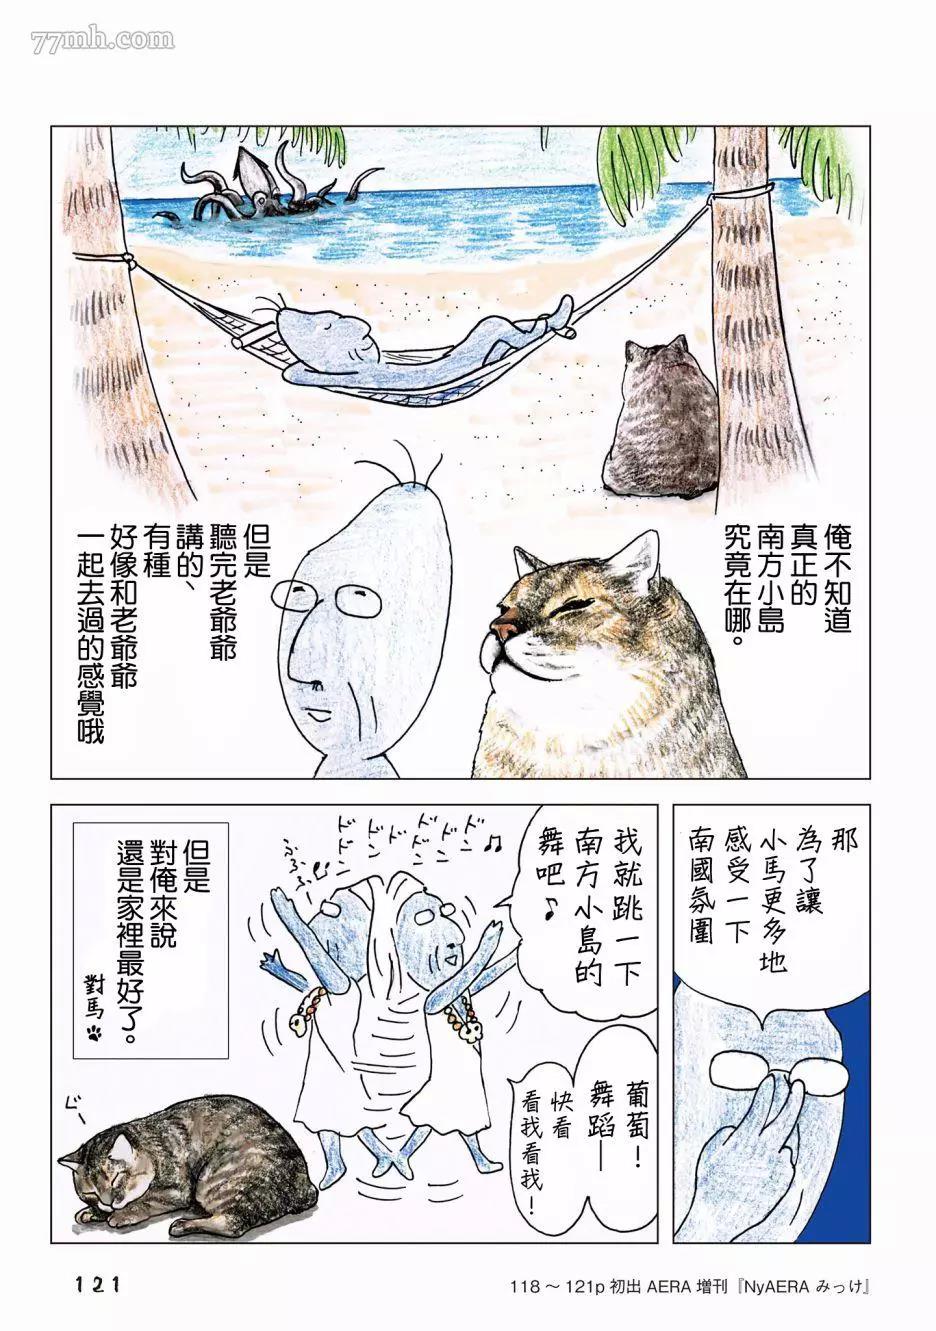 77mh.com
俺不知道
真正的
南方小島
究竟在哪。
但是
聽完老爺爺
講的、
有種
好像和老爺爺
一起去過的感覺哦
那
為了讓
小馬更多地
感受一下
南國氛圍
我就跳一下
南方小島的
舞吧♪
葡萄！
舞蹈——
快看
看我看我！
ドンドンドンドンドン♪
但是
對俺來說
還是家裡最好了。
對馬
121
118～121p 初出 AERA 増刊『NyAERA みっけ』